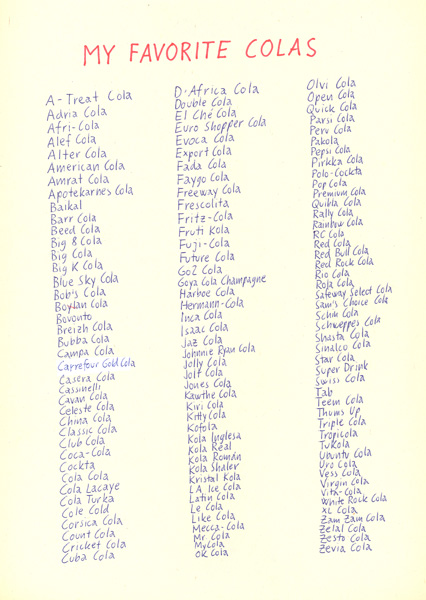 MY FAVORITE COLAS
A-Treat Cola
Adria Cola
Afri-Cola
Alef Cola
Alter Cola
American Cola
Amrat Cola
Apotekarnes Cola
Baikal
Barr Cola
Beed Cola
Big 8 Cola
Big Cola
Big K Cola
Blue Sky Cola
Bob's Cola
Boylan Cola
Bovonto
Breizh Cola
Bubba Cola
Campa Cola
Carrefour Gold Cola
Casera Cola
Cassinelli
Cavan Cola
Celeste Cola
China Cola
Classic Cola
Club Cola
Coca-Cola
Cockta
Cola Cola
Cola Lacaye
Cola Turka
Cole Cold
Corsica Cola
Count Cola
Cricket Cola
Cuba Cola
D'Africa Cola
Double Cola
El Ché Cola
Euro Shopper Cola
Evoca Cola
Export Cola
Fada Cola
Faygo Cola
Freeway Cola
Frescolita
Fritz-Cola
Fruti Kola
Fuji-Cola
Future Cola
Go2 Cola
Goya Cola Champagne
Harboe Cola
Hermann-Cola
Inca Cola
Isaac Cola
Jaz Cola
Johnnie Ryan Cola
Jolly Cola
Jolt Cola
Jones Cola
Kawthe Cola
Kiri Cola
Kitty Cola
Kofola
Kola Inglesa
Kola Real
Kola Román
Kola Shaler
Kristal Kola
LA Ice Cola
Latin Cola
Le Cola
Like Cola
Mecca-Cola
Mr. Cola
MyCola
OK Cola
Olvi Cola
Open Cola
Quick Cola
Parsi Cola
Peru Cola
Pakola
Pepsi Cola
Pirkka Cola
Polo-Cockta
Pop Cola
Premium Cola
Quibla Cola
Rally Cola
Rainbow Cola
RC Cola
Red Cola
Red Bull Cola
Red Rock Cola
Rio Cola
Roja Cola
Safeway Select Cola
Sam's Choice Cola
Schin Cola
Schweppes Cola
Shasta Cola
Sinalco Cola
Star Cola
Super Drink
Swiss Cola
Tab
Teem Cola
Thums Up
Triple Cola
Tropicola
TuKola
Ubuntu Cola
Uro Cola
Vess Cola
Virgin Cola
Vita-Cola
White Rock Cola
XL Cola
Zam Zam Cola
Zelal Cola
Zesto Cola
Zevia Cola